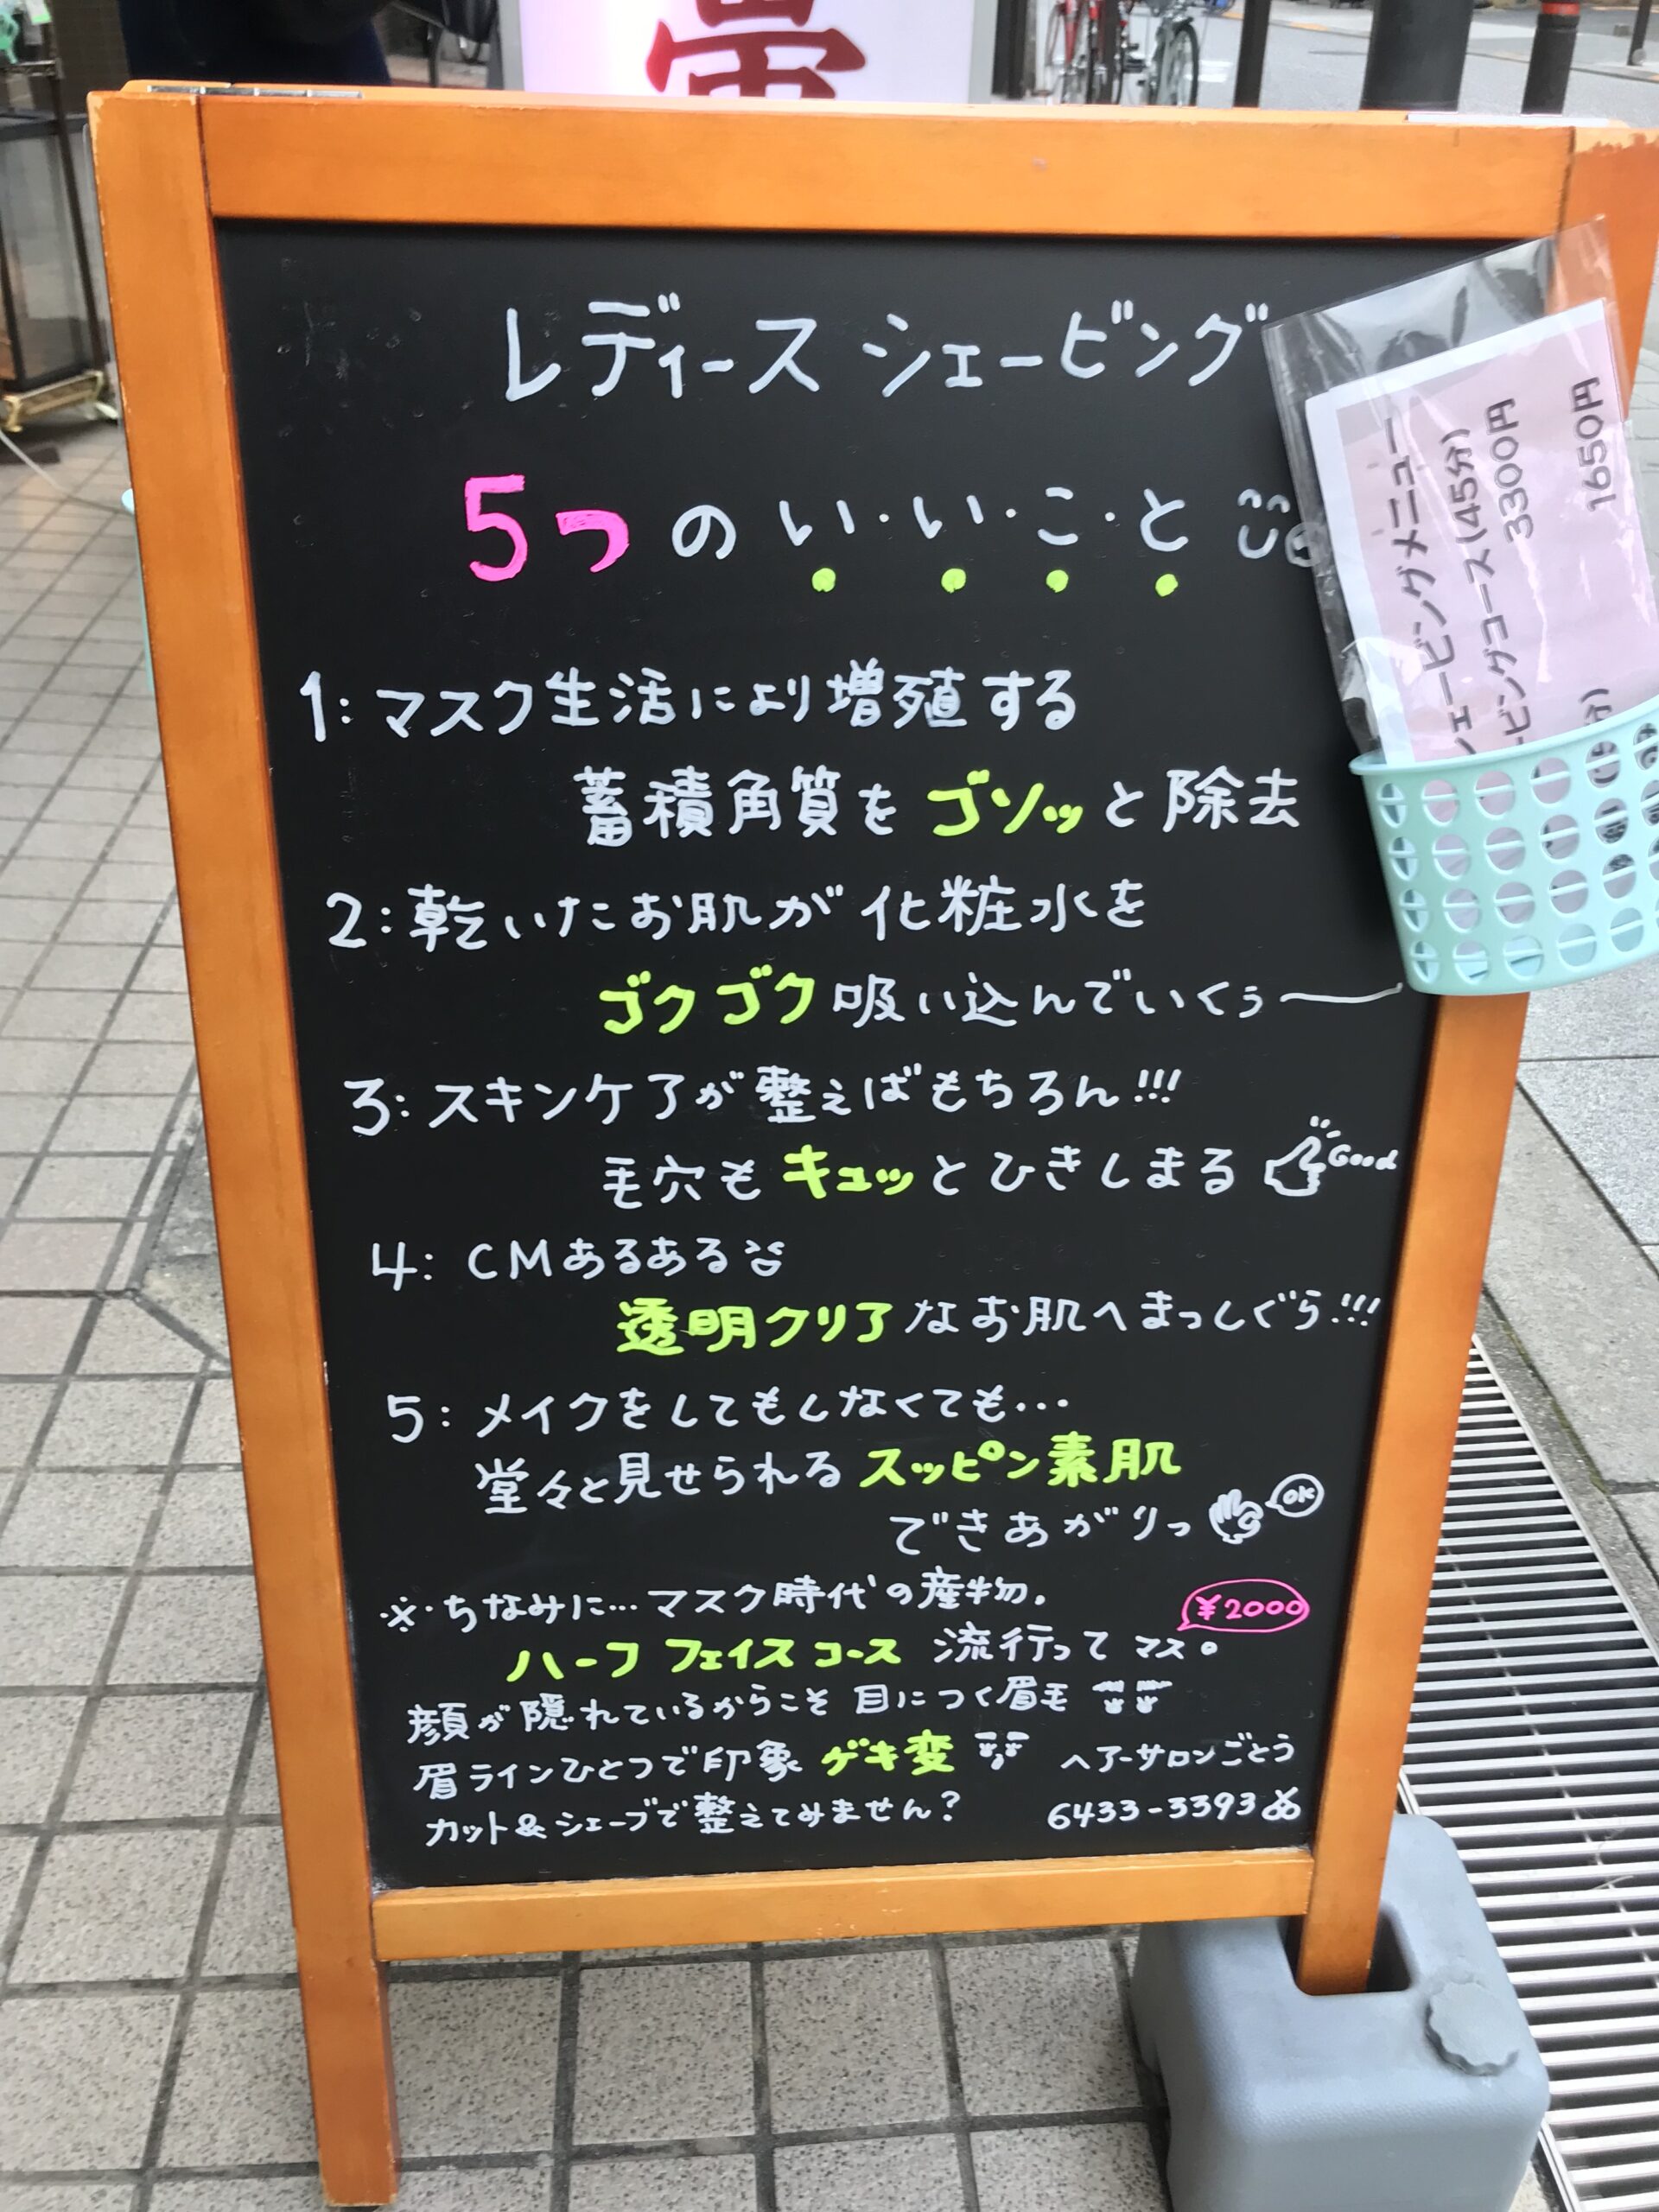 レディース シェービング
5つ の い・い・こ・と
1: マスク生活により増殖する
蓄積角質を ゴソッと除去
2: 乾いたお肌が 化粧水を
ゴクゴク吸い込んでいくぅー
3: スキンケアが 整えばもちろん!!!
毛穴も キュッと ひきしまる
Good
4: CMあるある
透明クリアなお肌へまっしぐら!!!
5: メイクをしてもしなくても…
堂々と見せられる スッピン素肌
できあがりっ
OK
※ちなみに…マスク時代の産物.
¥2000
ハーフ フェイス コース 流行って マス。
顔が隠れているからこそ 目につく眉毛
眉ラインひとつで印象 ゲキ変
カット&シェーブで整えてみません?
ヘアーサロンごとう
6433-3393
シェービングメニュー
ービングコース(45分)
3300円
分)
1650円